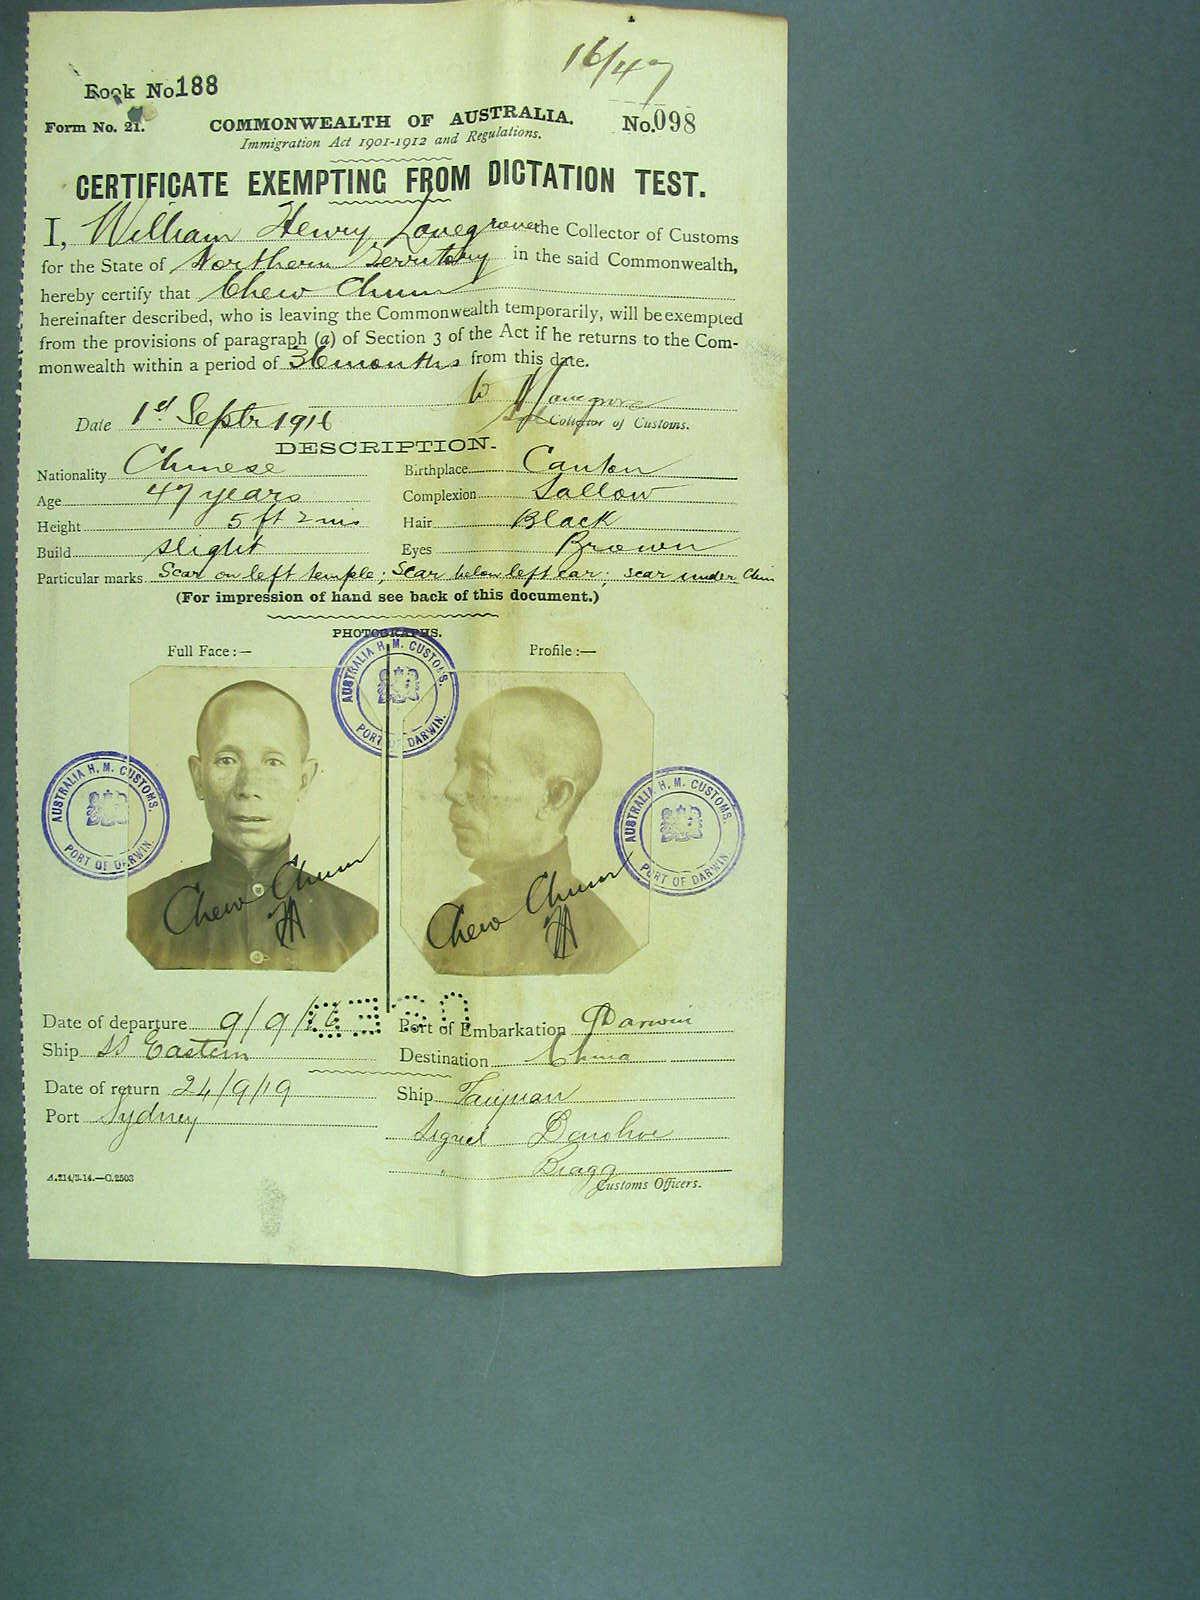 16/47
Book No 188
Form No. 21.
COMMONWEALTH OF AUSTRALIA.
No. 098
Immigration Act 1901-1912 and Regulations.
CERTIFICATE EXEMPTING FROM DICTATION TEST.
I, William Henry Lovegrove the Collector of Customs
for the State of Northern Territory in the said Commonwealth,
hereby certify that Chew Chum
hereinafter described, who is leaving the Commonwealth temporarily, will be exempted
from the provisions of paragraph (a) of Section 3 of the Act if he returns to the Com-
monwealth within a period of 36 months from this date.
W H Lovegrove
Date 1st Septr 1916
Collector of Customs.
DESCRIPTION.
Nationality Chinese Birthplace Canton
Age 47 years Complexion Sallow
Height 5 ft 2 ins Hair Black
Build slight Eyes Brown
Particular marks Scar on left temple; Scar below left ear; scar under Chin
(For impression of hand see back of this document.)
PHOTOGRAPHS.
Full Face:— Profile:—
AUSTRALIA H. M. CUSTOMS.
PORT OF DARWIN.
AUSTRALIA H. M. CUSTOMS.
PORT OF DARWIN
AUSTRALIA H. M. CUSTOMS.
PORT OF DARWIN
Chew Chum
Chew Chum
Date of departure 9/9/16 Port of Embarkation Darwin
Ship SS Eastern Destination China
Date of return 24/9/19 Ship Taiyuan
Port Sydney
Signed Donohoe
" Bragg
A.214/3.14.—C.2503
Customs Officers.